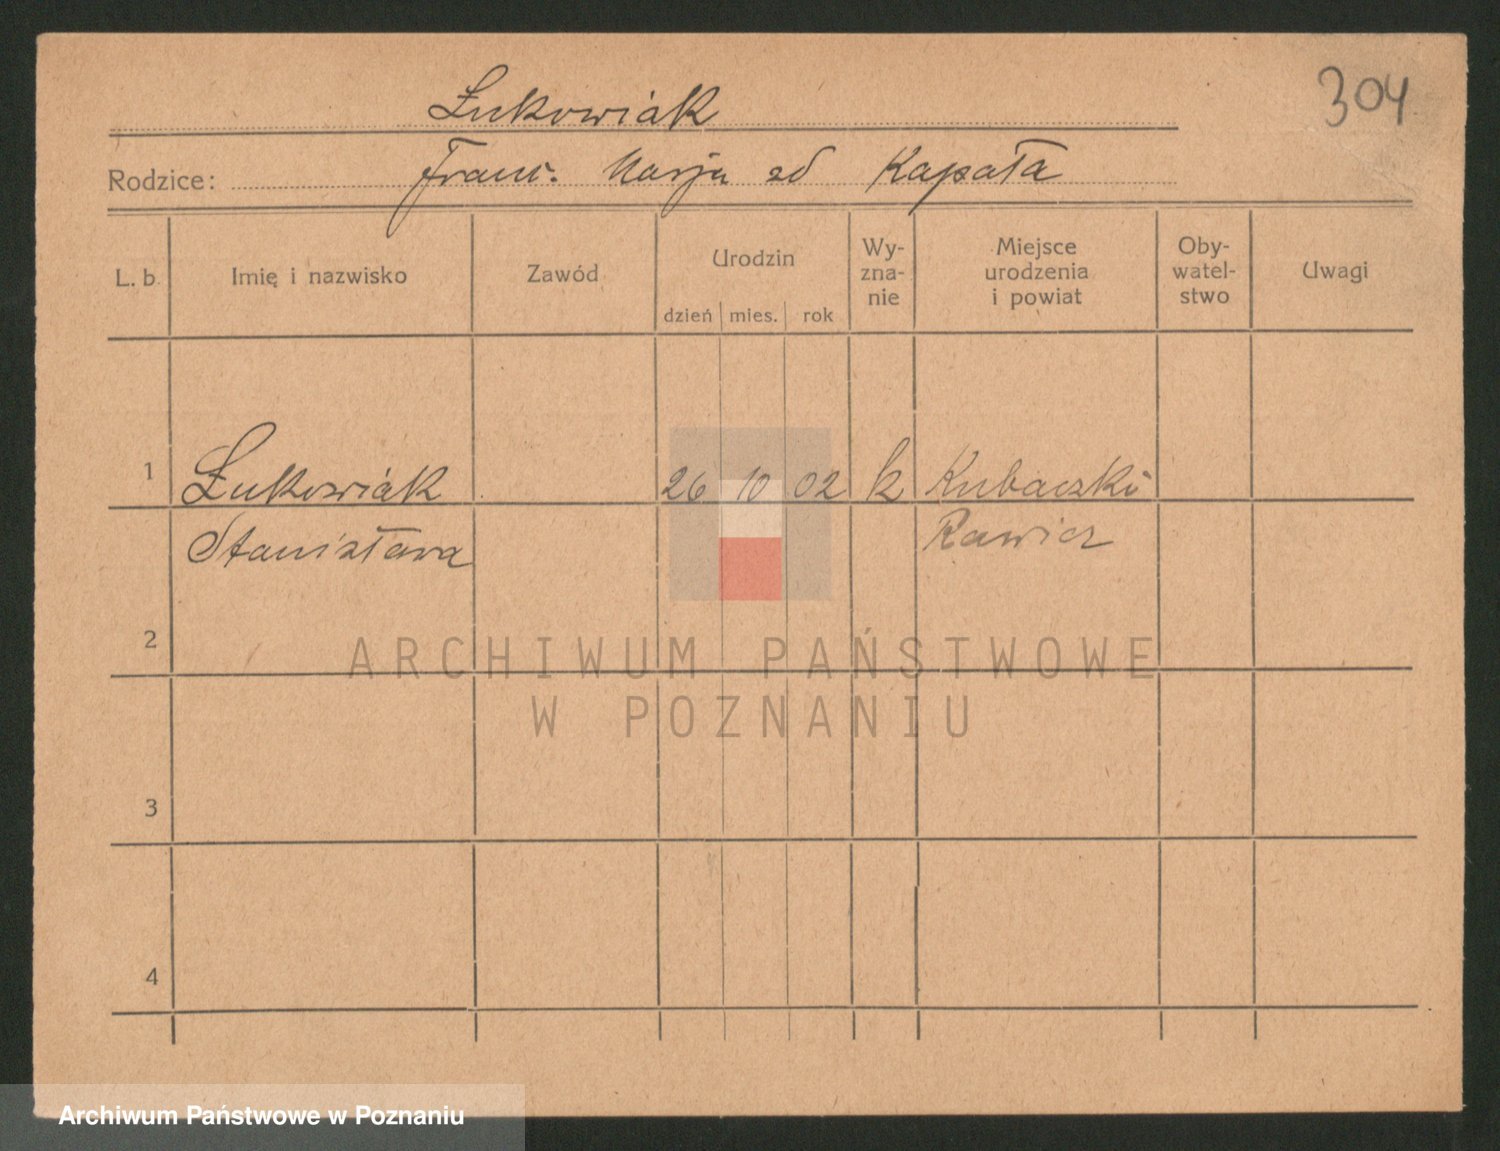 304
Łukowiak
Rodzice: Franc. Marja zd Kapała
L. b. Imię i nazwisko Zawód Urodzin Wy-zna-nie Miejsce urodzenia i powiat Oby-watel-stwo Uwagi
dzień mies. rok
1 Łukowiak 26 10 02 k Kubaczki
Stanisława Rawicz
2
ARCHIWUM PAŃSTWOWE
W POZNANIU
3
4
Archiwum Państwowe w Poznaniu